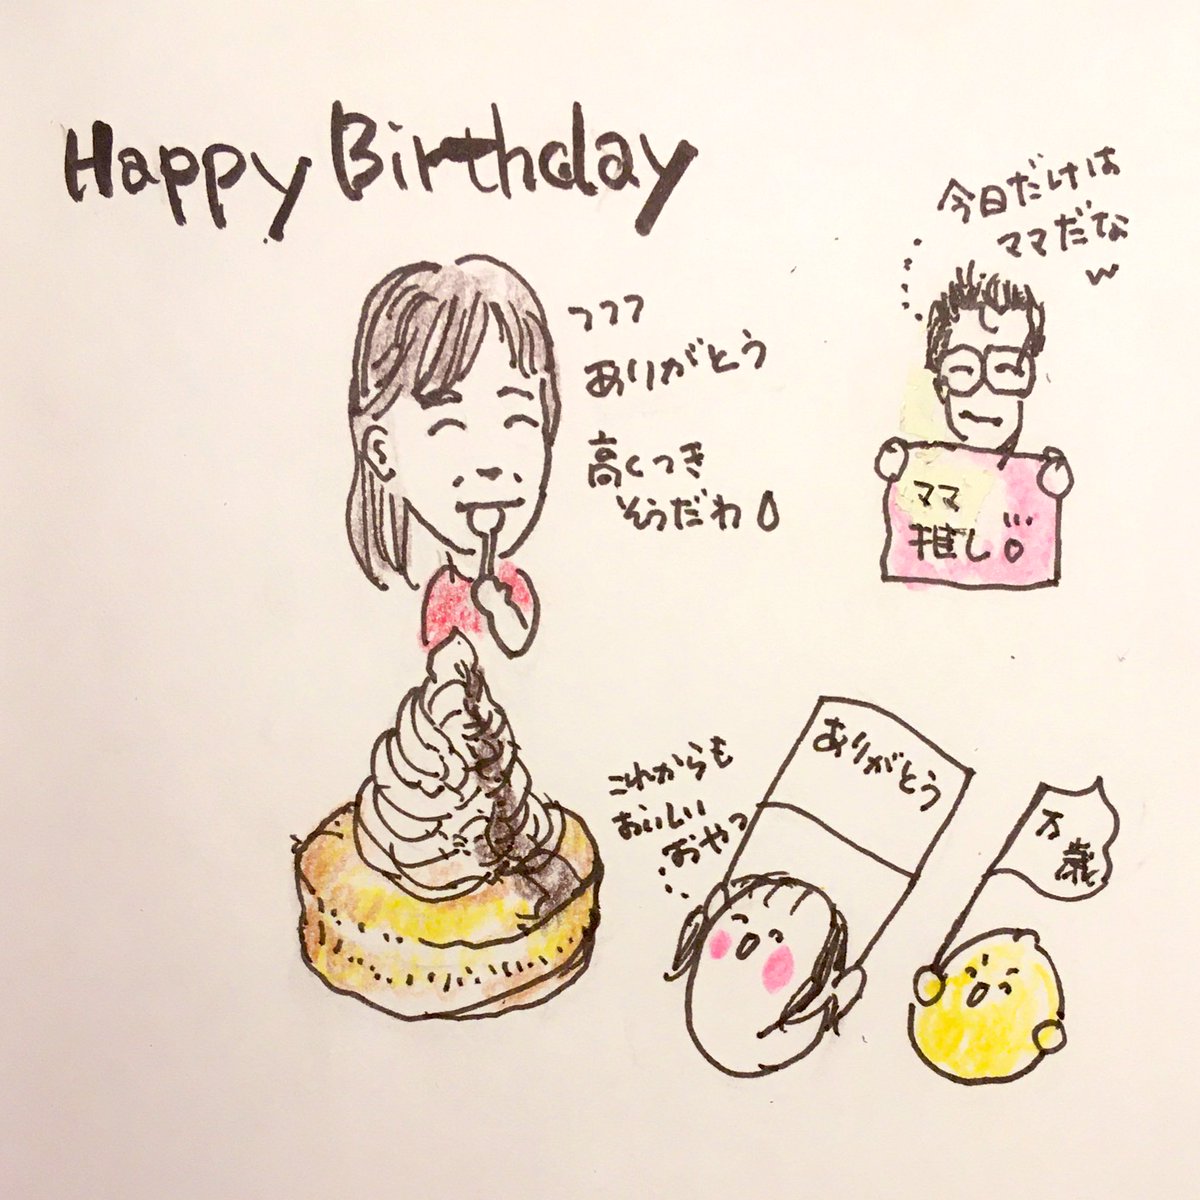 Happy Birthday
今日だけは
ママだな
w
フフフ
ありがとう
高くつき
そうだわ
ママ
推し!!!
これからも
おいしい
おやつ
ありがとう
万歳